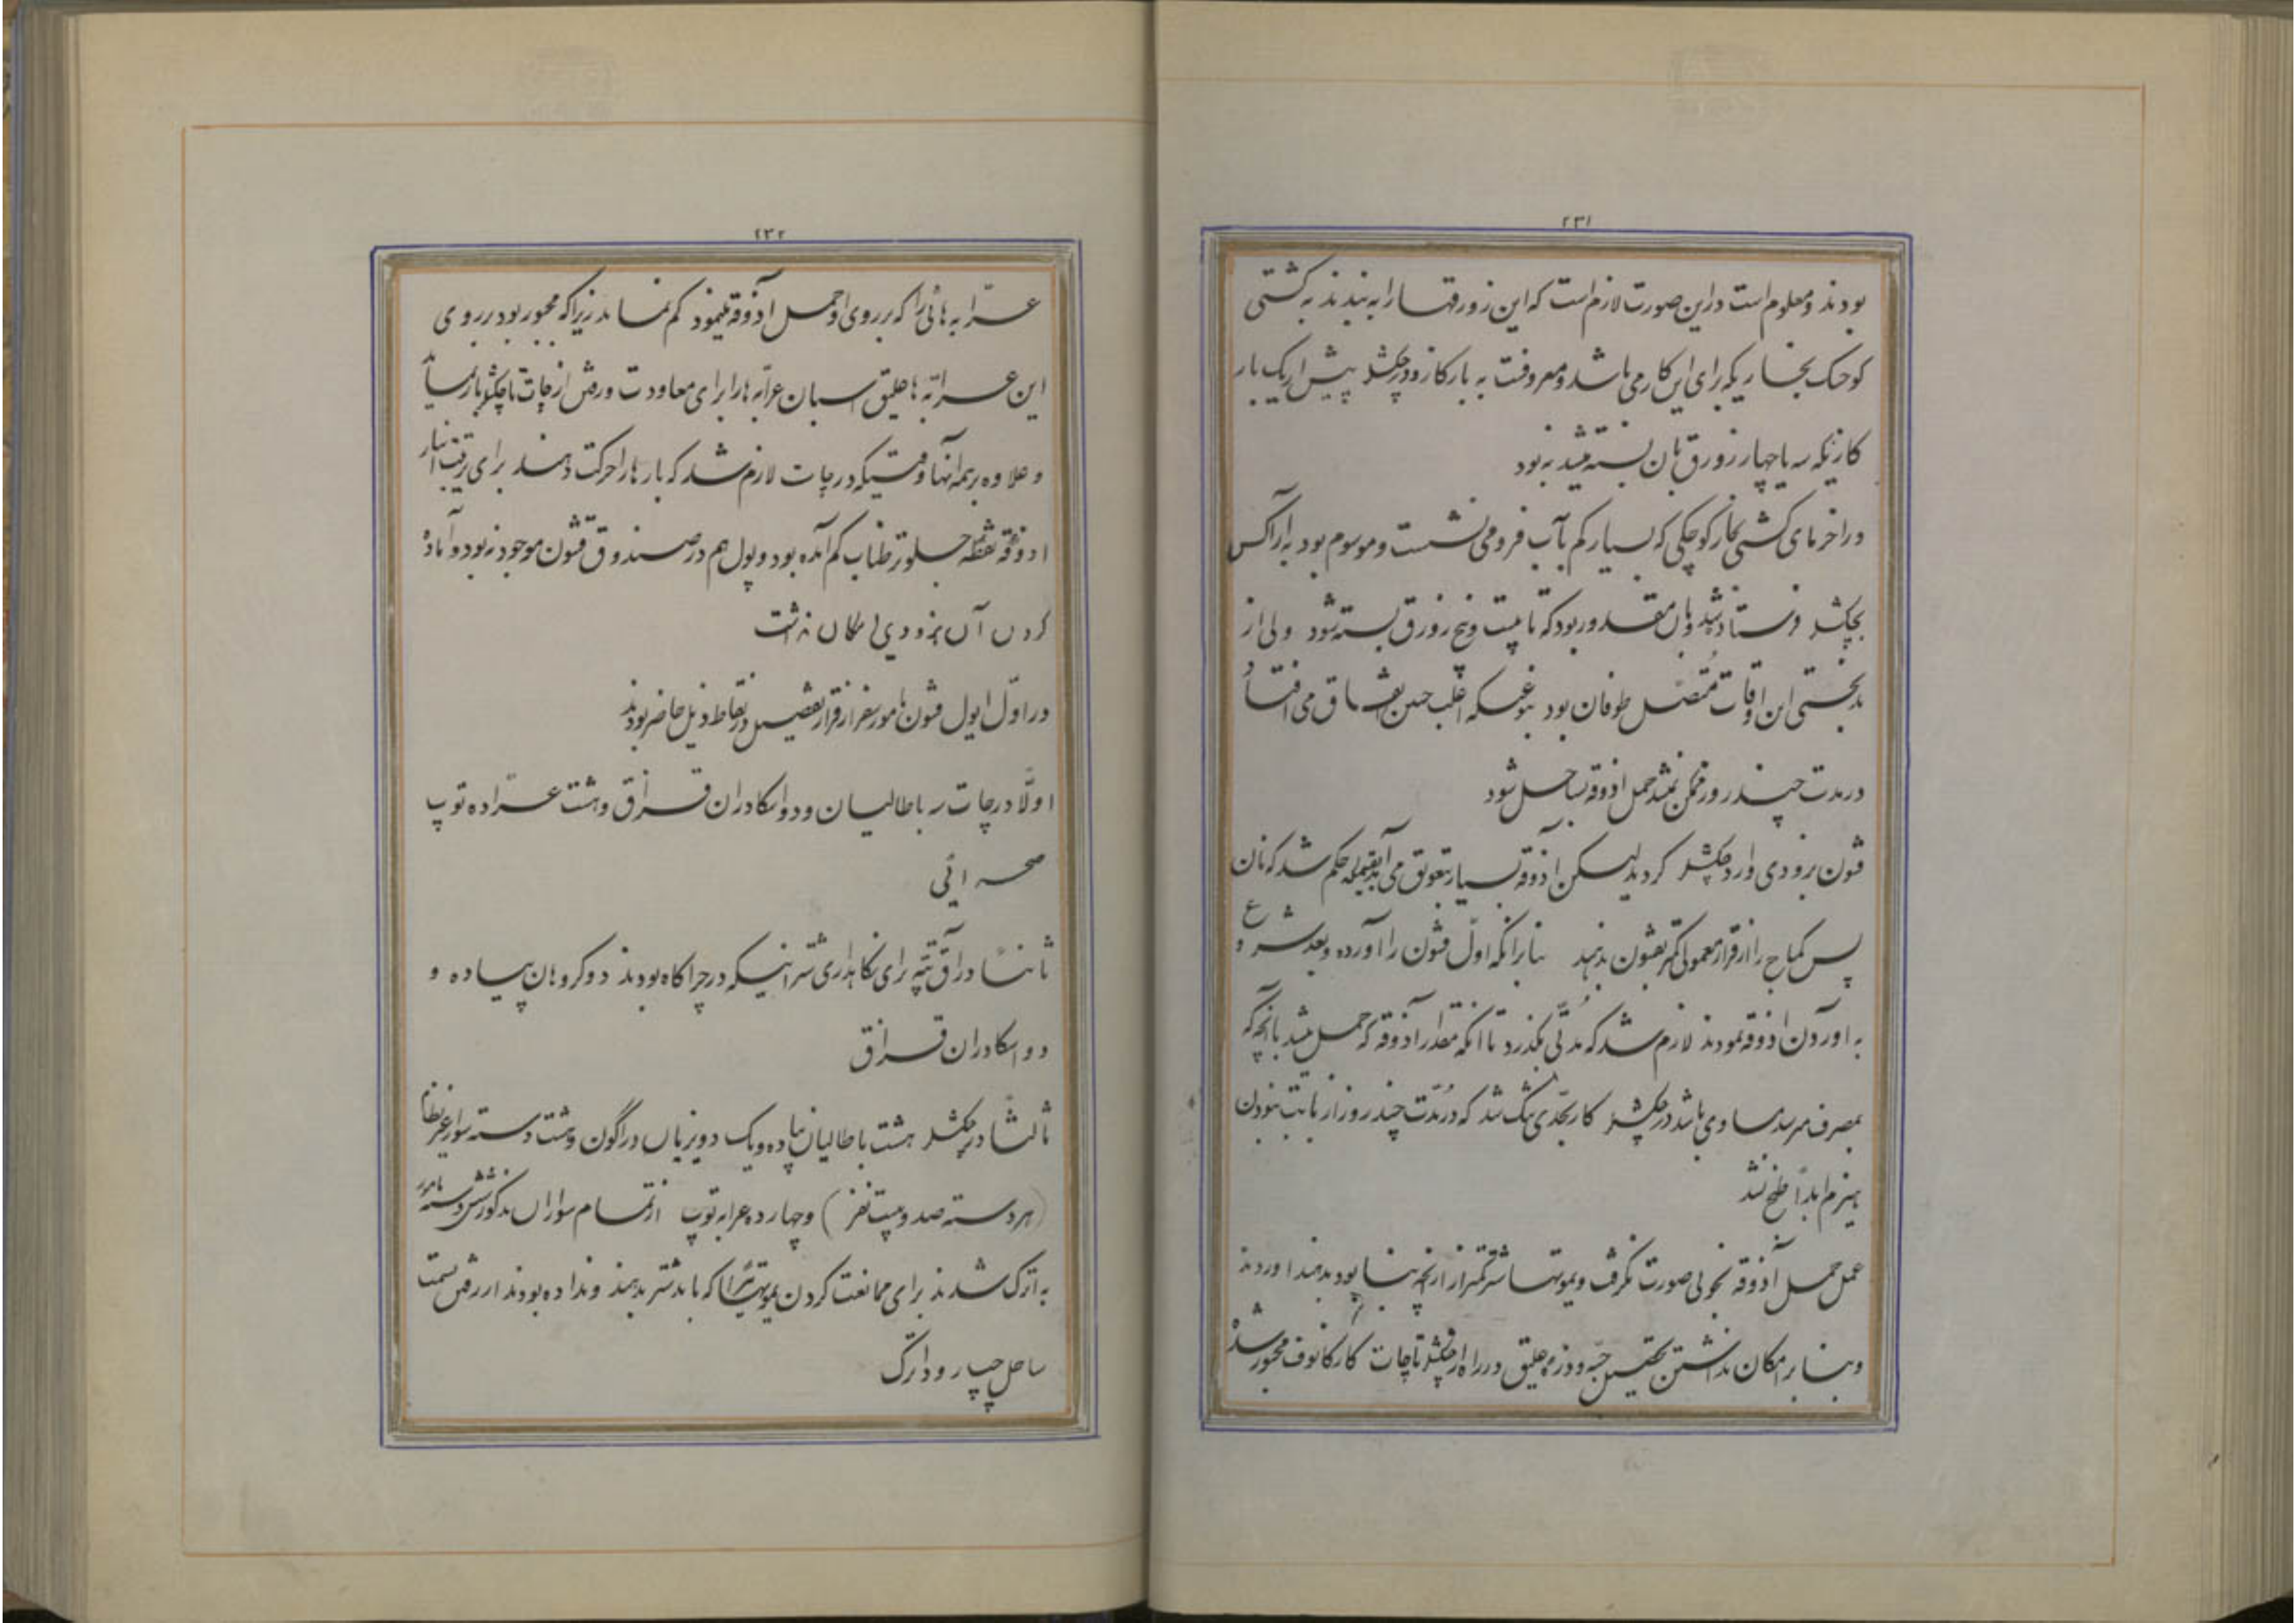 ۲۳۱
بودند و معلوم است در این صورت لازم است که این زورقها را به بندند به کشتی
کوچک بخاریکه برای این کار می باشد و معروفست به بارکاز و در چکشلر پیش از یک بار
کازیکه سه یا چهار زورق بان بسته میشد نبود
در اخر مای کشتی بخار کوچکی که بسیار کم بآب فرو می نشست و موسوم بود به آراکس
بچکشلر فرستاده شد و بان مقدور بود که تا بیست و پنج زورق بسته شود ولی از
بدبختی این اوقات متصل طوفان بود بنوعیکه اغلب چنین اتفاق می افتاد
در مدت چند روز ممکن نمیشد حمل اذوقه بساحل شود
قشون بزودی وارد چکشلر گردید لیکن اذوقه بسیار بتعویق می آمد بقسمیکه حکم شد که نان
پس کماج را از قرار معمولی کمتر بقشون بدهند بنابرانکه اول قشون را آورده و بعد شروع
به آوردن اذوقه نمودند لازم شد که مدتی بگذرد تا آنکه مقدار آذوقه که حمل میشد بآنچه که
بمصرف میرسد مساوی باشد در چکشلر کار بحدی تنگ شد که در مدت چند روز از بابت نبودن
هیزم ابداً طبخ نشد
عمل حمل آذوقه بخوبی صورت نگرفت و یموتها شتر کمتر از آنچه بنا بود بدهند اوردند
و بنابر امکان نداشتن تحصیل جبه و وذره علیق در راه از چکشلر تا چات کارکانوف مجبور شد
۲۳۲
عرّابه هائی را که بر روی او حمل آذوقه مینمود کم نماید زیرا که مجبور بود بر روی
این عرابه ها علیق اسبان عرّابه ها را برای معاودت و رفتن از چات تا چکشلر بار نماید
و علاوه بر همه انها وقتیکه در چات لازم شد که بار ها را حرکت دهند برای ترتیب انبار
اذوقه نقطه جلوتر طناب کم آمده بود و پول هم در صندوق قشون موجود نبود و آماده
کردن آن بزودی امکان نداشت
در اوّل ایول قشون مامور سفر از قرار تفصیل در نقاط ذیل حاضر بودند
اولاً در چات سه باطالیان و دو اسکادران قزاق و هشت عرّاده توپ
صحرائی
ثانیاً در آق تپه برای نگاهداری شترانیکه در چراگاه بودند دو کروهان پیاده و
دو اسکادران قزاق
ثالثاً در چکشلر هشت باطالیان پیاده و یک دویزیان دراگون و هشت دسته سوار غیر نظام
(هر دسته صد و بیست نفر) و چهارده عرابه توپ از تمام سواران مذکور شش دسته مامور
به اترک شدند برای ممانعت کردن یموتهائیرا که باید شتر بدهند و نداده بودند از رفتن بسمت
ساحل چپ رود اترک